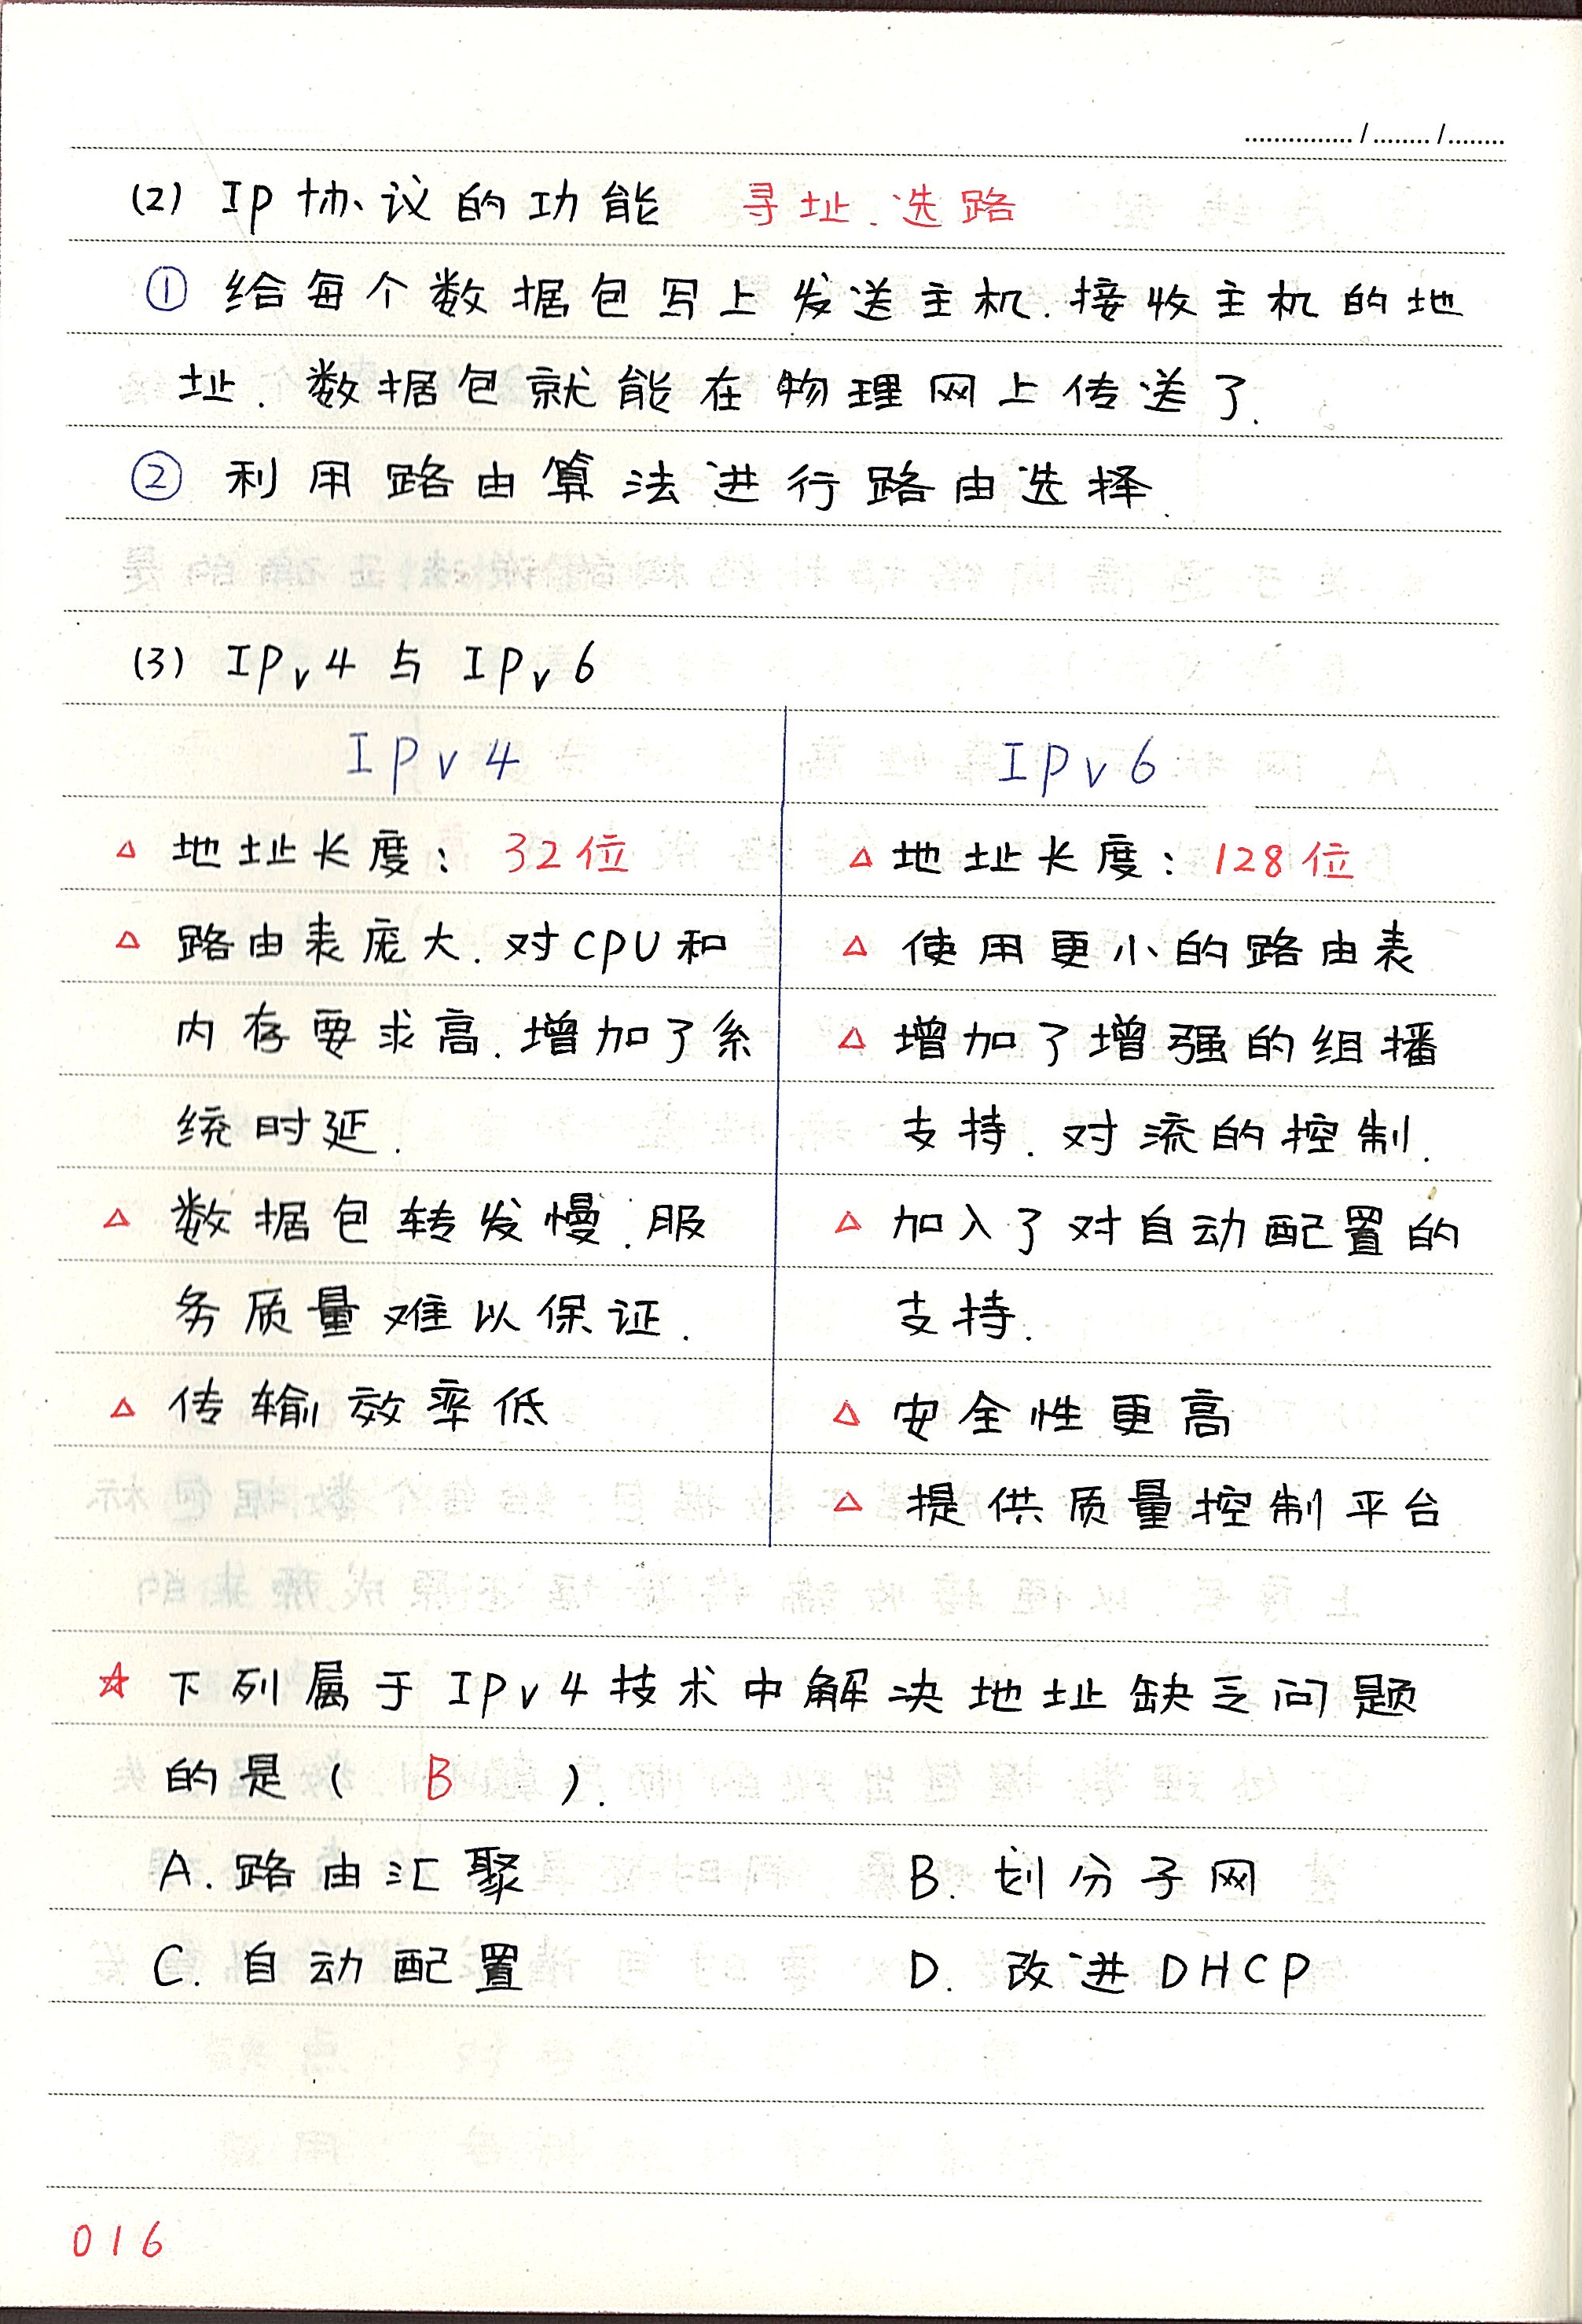 (2) Ip 协议的功能 寻址.选路
① 给每个数据包写上发送主机.接收主机的地
址.数据包就能在物理网上传送了.
② 利用路由算法进行路由选择.
(3) IPv4与IPv6
IPv4
△ 地址长度：32位
△ 路由表庞大.对CPU和
内存要求高.增加了系
统时延.
△ 数据包转发慢.服
务质量难以保证.
△ 传输效率低
IPv6
△ 地址长度：128位
△ 使用更小的路由表
△ 增加了增强的组播
支持.对流的控制.
△ 加入了对自动配置的
支持.
△ 安全性更高
△ 提供质量控制平台
☆ 下列属于IPv4技术中解决地址缺乏问题
的是（ B ）.
A. 路由汇聚 B. 划分子网
C. 自动配置 D. 改进DHCP
016